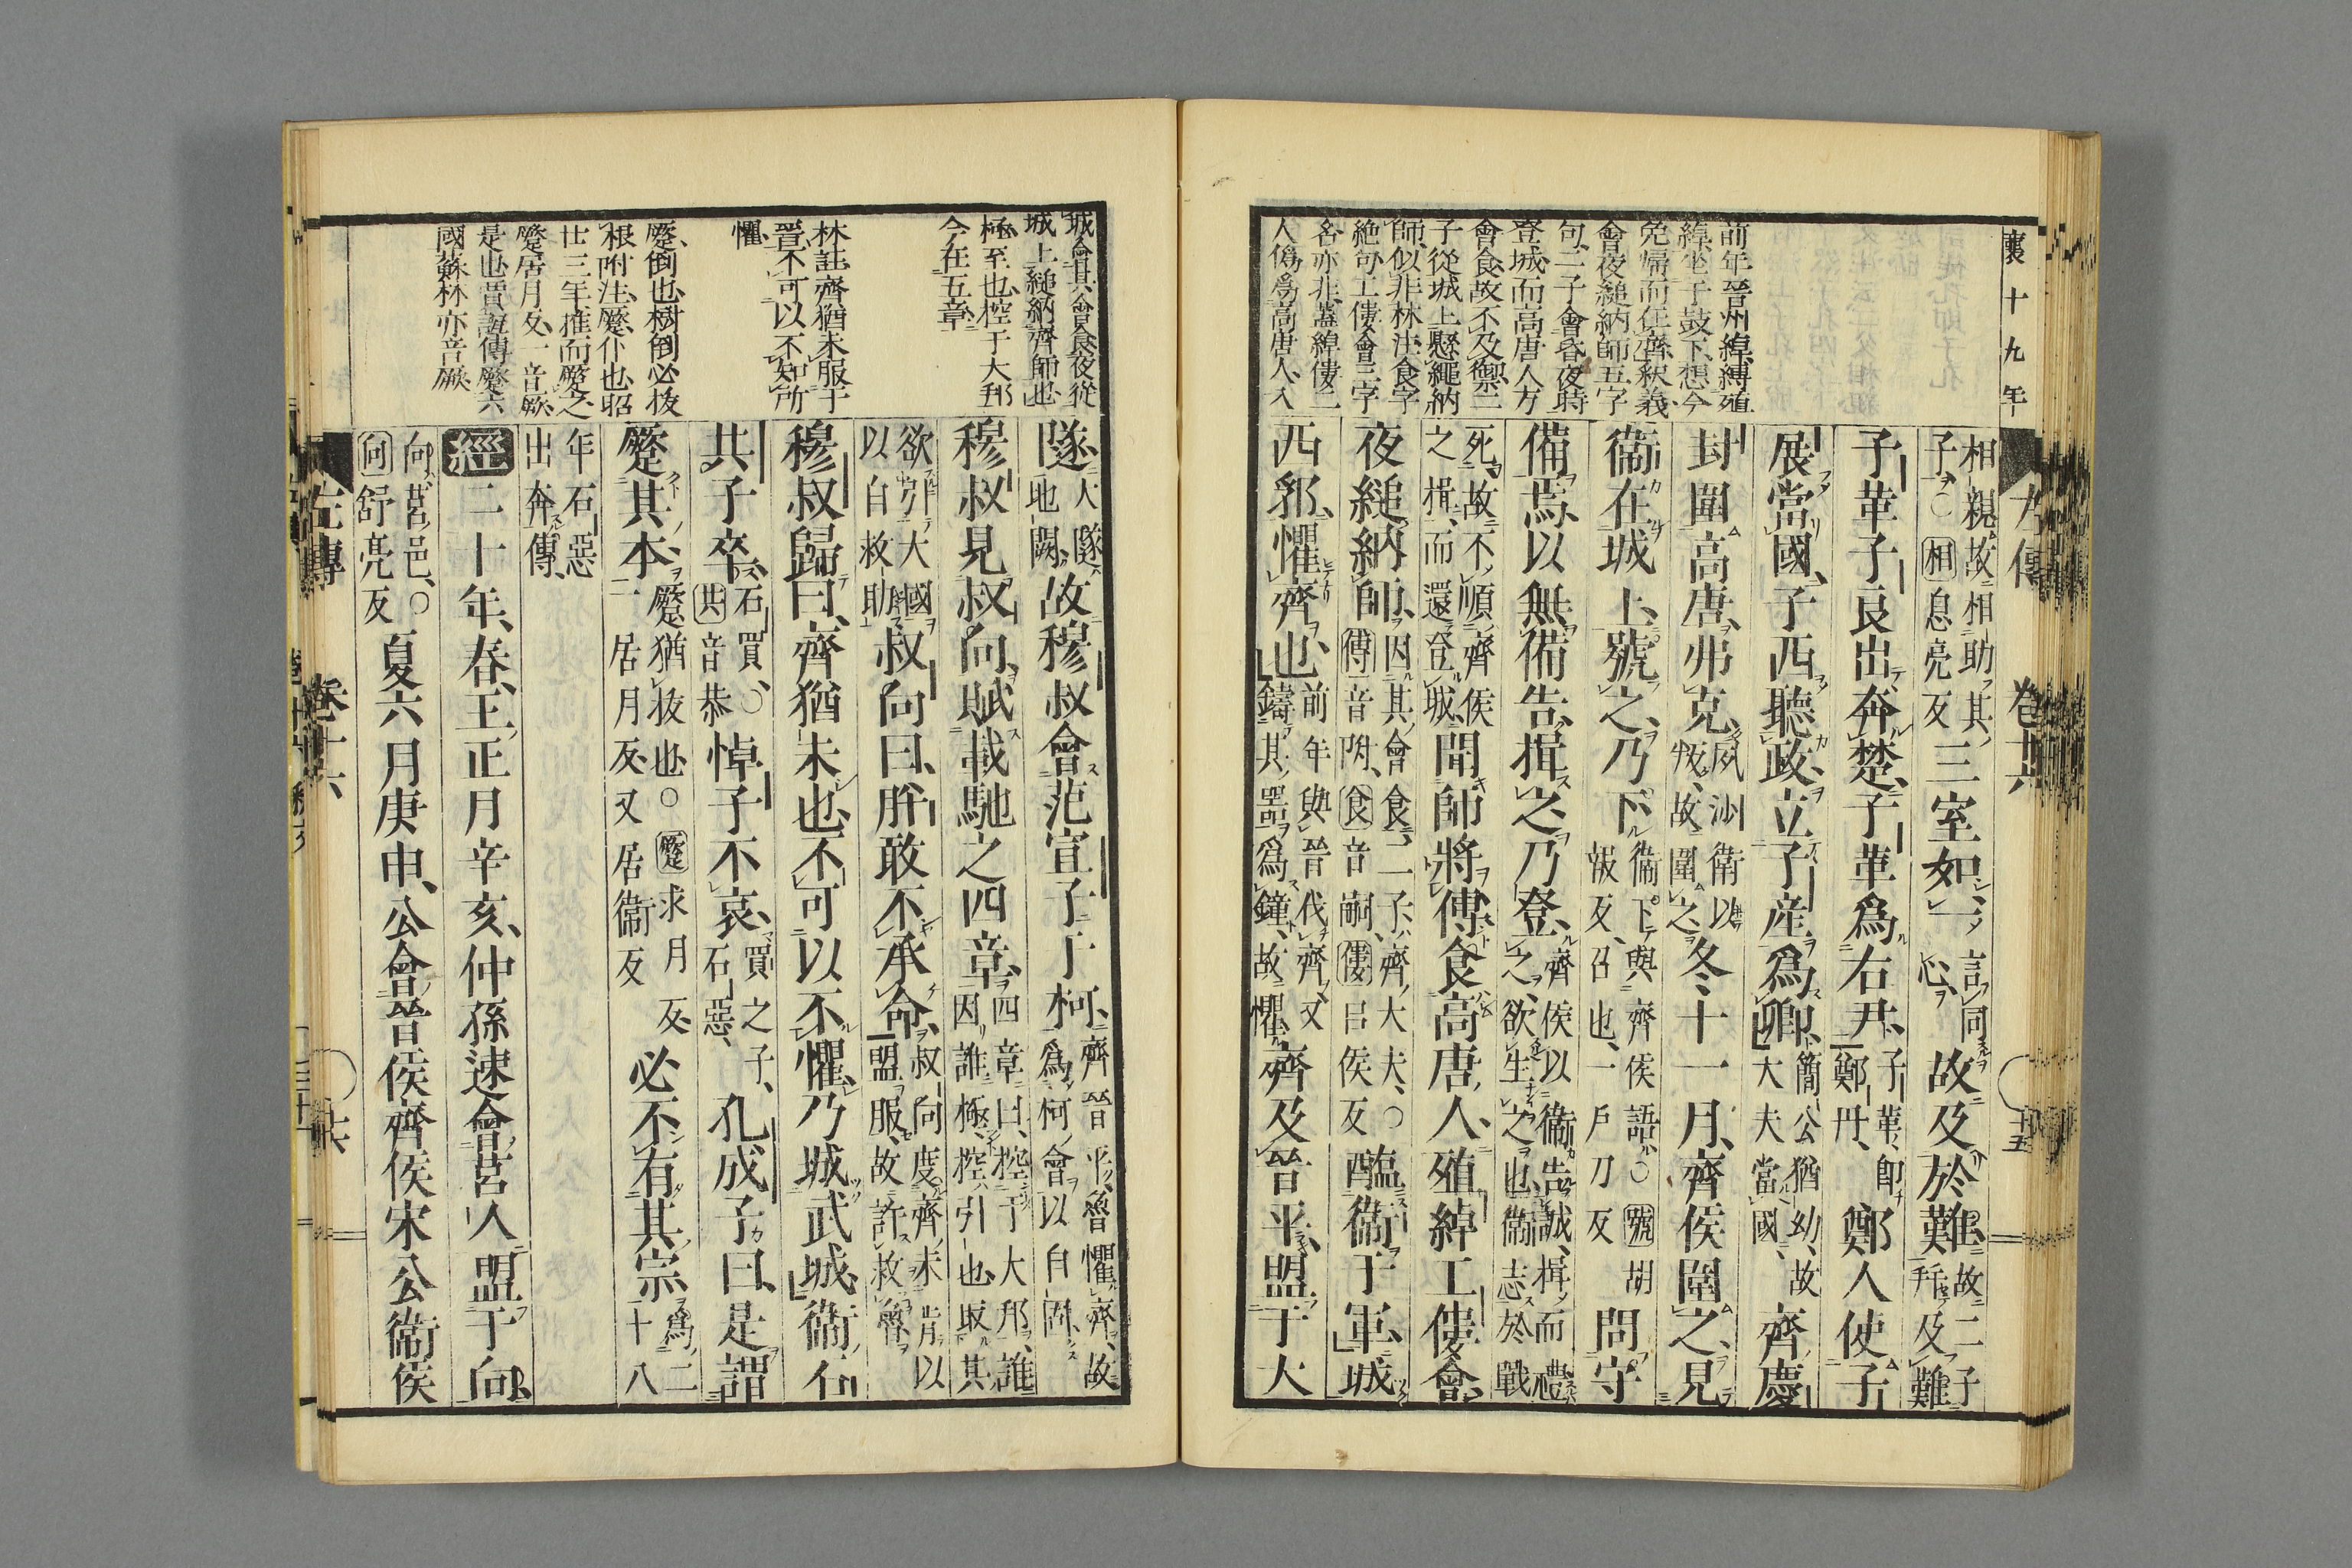 襄十九年
左傳
卷十六
十五
前年晉州綽縛殖
綽坐于鼓下想今
免歸而任齊釈義
會夜縋納師五字
句二子會昏夜時
登城而高唐人方
會食故不及禦二
子從城上懸繩納
師似非林注食字
絶句工僂會三字
名亦非蓋綽僂二
人僞爲高唐人入
相親故相助其
子〇相息亮反
三室如一
言同
心
故及於難
故二子
并及難
子革子良出奔楚子革爲右尹
子革即
鄭丹
鄭人使子
展當國子西聽政立子産爲卿
簡公猶幼故
大夫當國
齊慶
封圍高唐弗克
夙沙衛以
叛故圍之
冬十一月齊侯圍之見
衞在城上號之乃下
衞下與齊侯語〇號胡
報反召也一戶刀反
問守
備焉以無備告揖之乃登
齊侯以衞告誠揖而禮
之欲生之也衞志於戰
死故不順齊侯
之揖而還登城
聞師將傅食高唐人殖綽工僂會
夜縋納師
因其會食二子齊大夫〇
傅音附食音嗣僂呂侯反
醢衞于軍城
西郛懼齊也
前年與晉伐齊又
鑄其器爲鐘故懼
齊及晉平盟于大
城會其會食夜從
城上縋納齊師也
極至也控于大邦
今在五章
林註齊猶未服于
晉不可以不知所
懼
蹷倒也樹倒必拔
根附注蹷仆也昭
廿三年推而蹷之
蹷居月反一音厥
是也賈誼傳蹷六
國蘇林亦音厥
隧
大隧
地闕
故穆叔會范宣子于柯
齊晉平魯懼齊故
爲柯會以自固
穆叔見叔向賦載馳之四章
四章曰控于大邦誰
因誰極控引也取其
欲引大國
以自救助
叔向曰肸敢不承命
叔向度齊未肯以
盟服故許救魯
穆叔歸曰齊猶未也不可以不懼乃城武城衞石
共子卒
石買〇
共音恭
悼子不哀
買之子
石惡
孔成子曰是謂
蹷其本
蹷猶拔也〇蹷求月反
一居月反又居衞反
必不有其宗
爲二
十八
年石惡
出奔傳
經二十年春王正月辛亥仲孫速會莒人盟于向
向莒邑〇
向舒亮反
夏六月庚申公會晉侯齊侯宋公衞侯
左傳
卷十六
十六